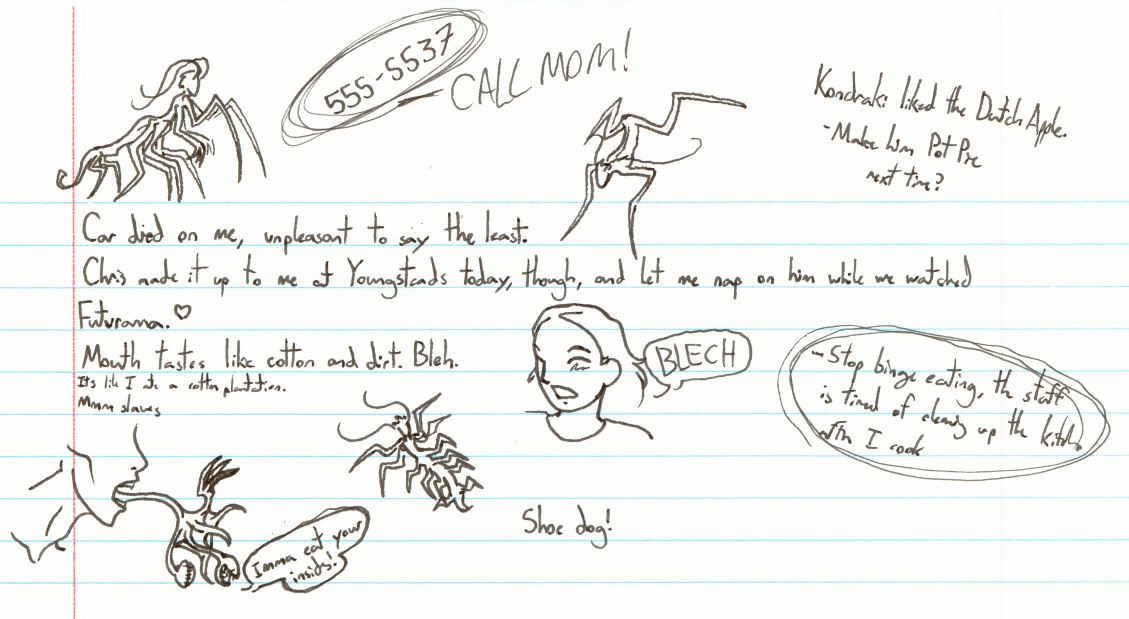 555-5537
CALL MOM!
Kondraki liked the Dutch Apple.
-Make him Pot Pie
next time?
Car died on me, unpleasant to say the least.
Chris made it up to me at Youngsteads today, though, and let me nap on him while we watched
Futurama. ♡
Mouth tastes like cotton and dirt. Bleh.
It's like I ate a cotton plantation.
Mmm slaves
BLECH
-Stop binge eating, the staff
is tired of cleaning up the kitchen
when I cook
Imma eat your
insids!
Shoe dog!